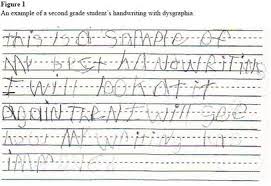 Figure 1
An example of a second grade student's handwriting with dysgraphia.
this is a Sample of
My best hANdwRiting
I will look at it
Again then I will see
how My writing has